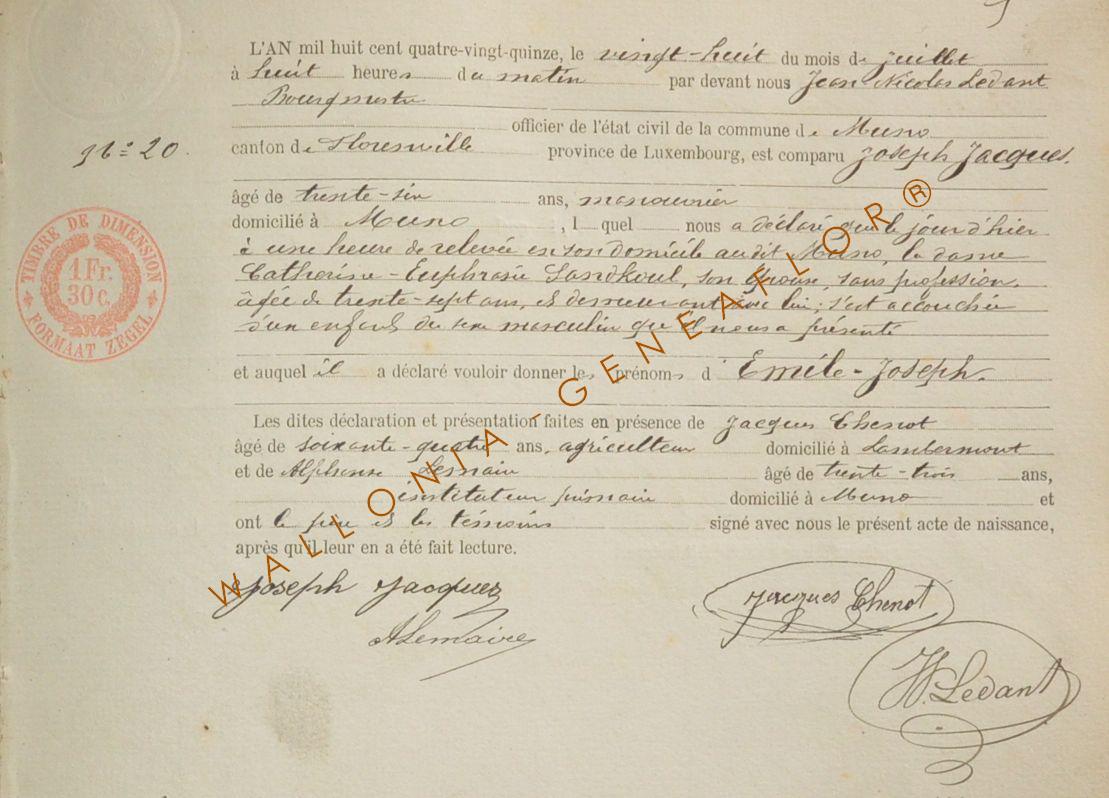 L'AN mil huit cent quatre-vingt-quinze, le vingt-huit du mois de juillet
à huit heures du matin par devant nous Jean Nicolas Ledant
Bourgmestre
officier de l'état civil de la commune de Muno
No 20.
canton de Florenville province de Luxembourg, est comparu Joseph Jacques.
âgé de trente-six ans, manouvrier
domicilié à Muno, l quel nous a déclaré que le jour d'hier
à une heure de relevée en son domicile audit Muno, la dame
Catherine-Euphrasie Landkoul, son épouse, sans profession,
âgée de trente-sept ans, et demeurant avec lui; s'est accouchée
d'un enfant du sexe masculin qu'il nous a présenté
TIMBRE DE DIMENSION
1 Fr.
30 c.
FORMAAT ZEGEL
et auquel il a déclaré vouloir donner les prénoms d Emile-Joseph.
Les dites déclaration et présentation faites en présence de Jacques Thenot
âgé de soixante-quatre ans, agriculteur domicilié à Lambermont
et de Alphonse Lemaire âgé de trente-trois ans,
instituteur primaire domicilié à Muno et
ont le père et les témoins signé avec nous le présent acte de naissance,
après qu'il leur en a été fait lecture.
Joseph Jacques
Jacques Thenot
ALemaire
N. Ledant
WALLONIA-GENEAFLOR®